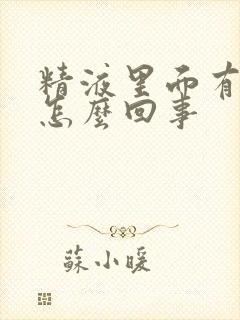 精液里面有
怎麼回事
蘇小暖